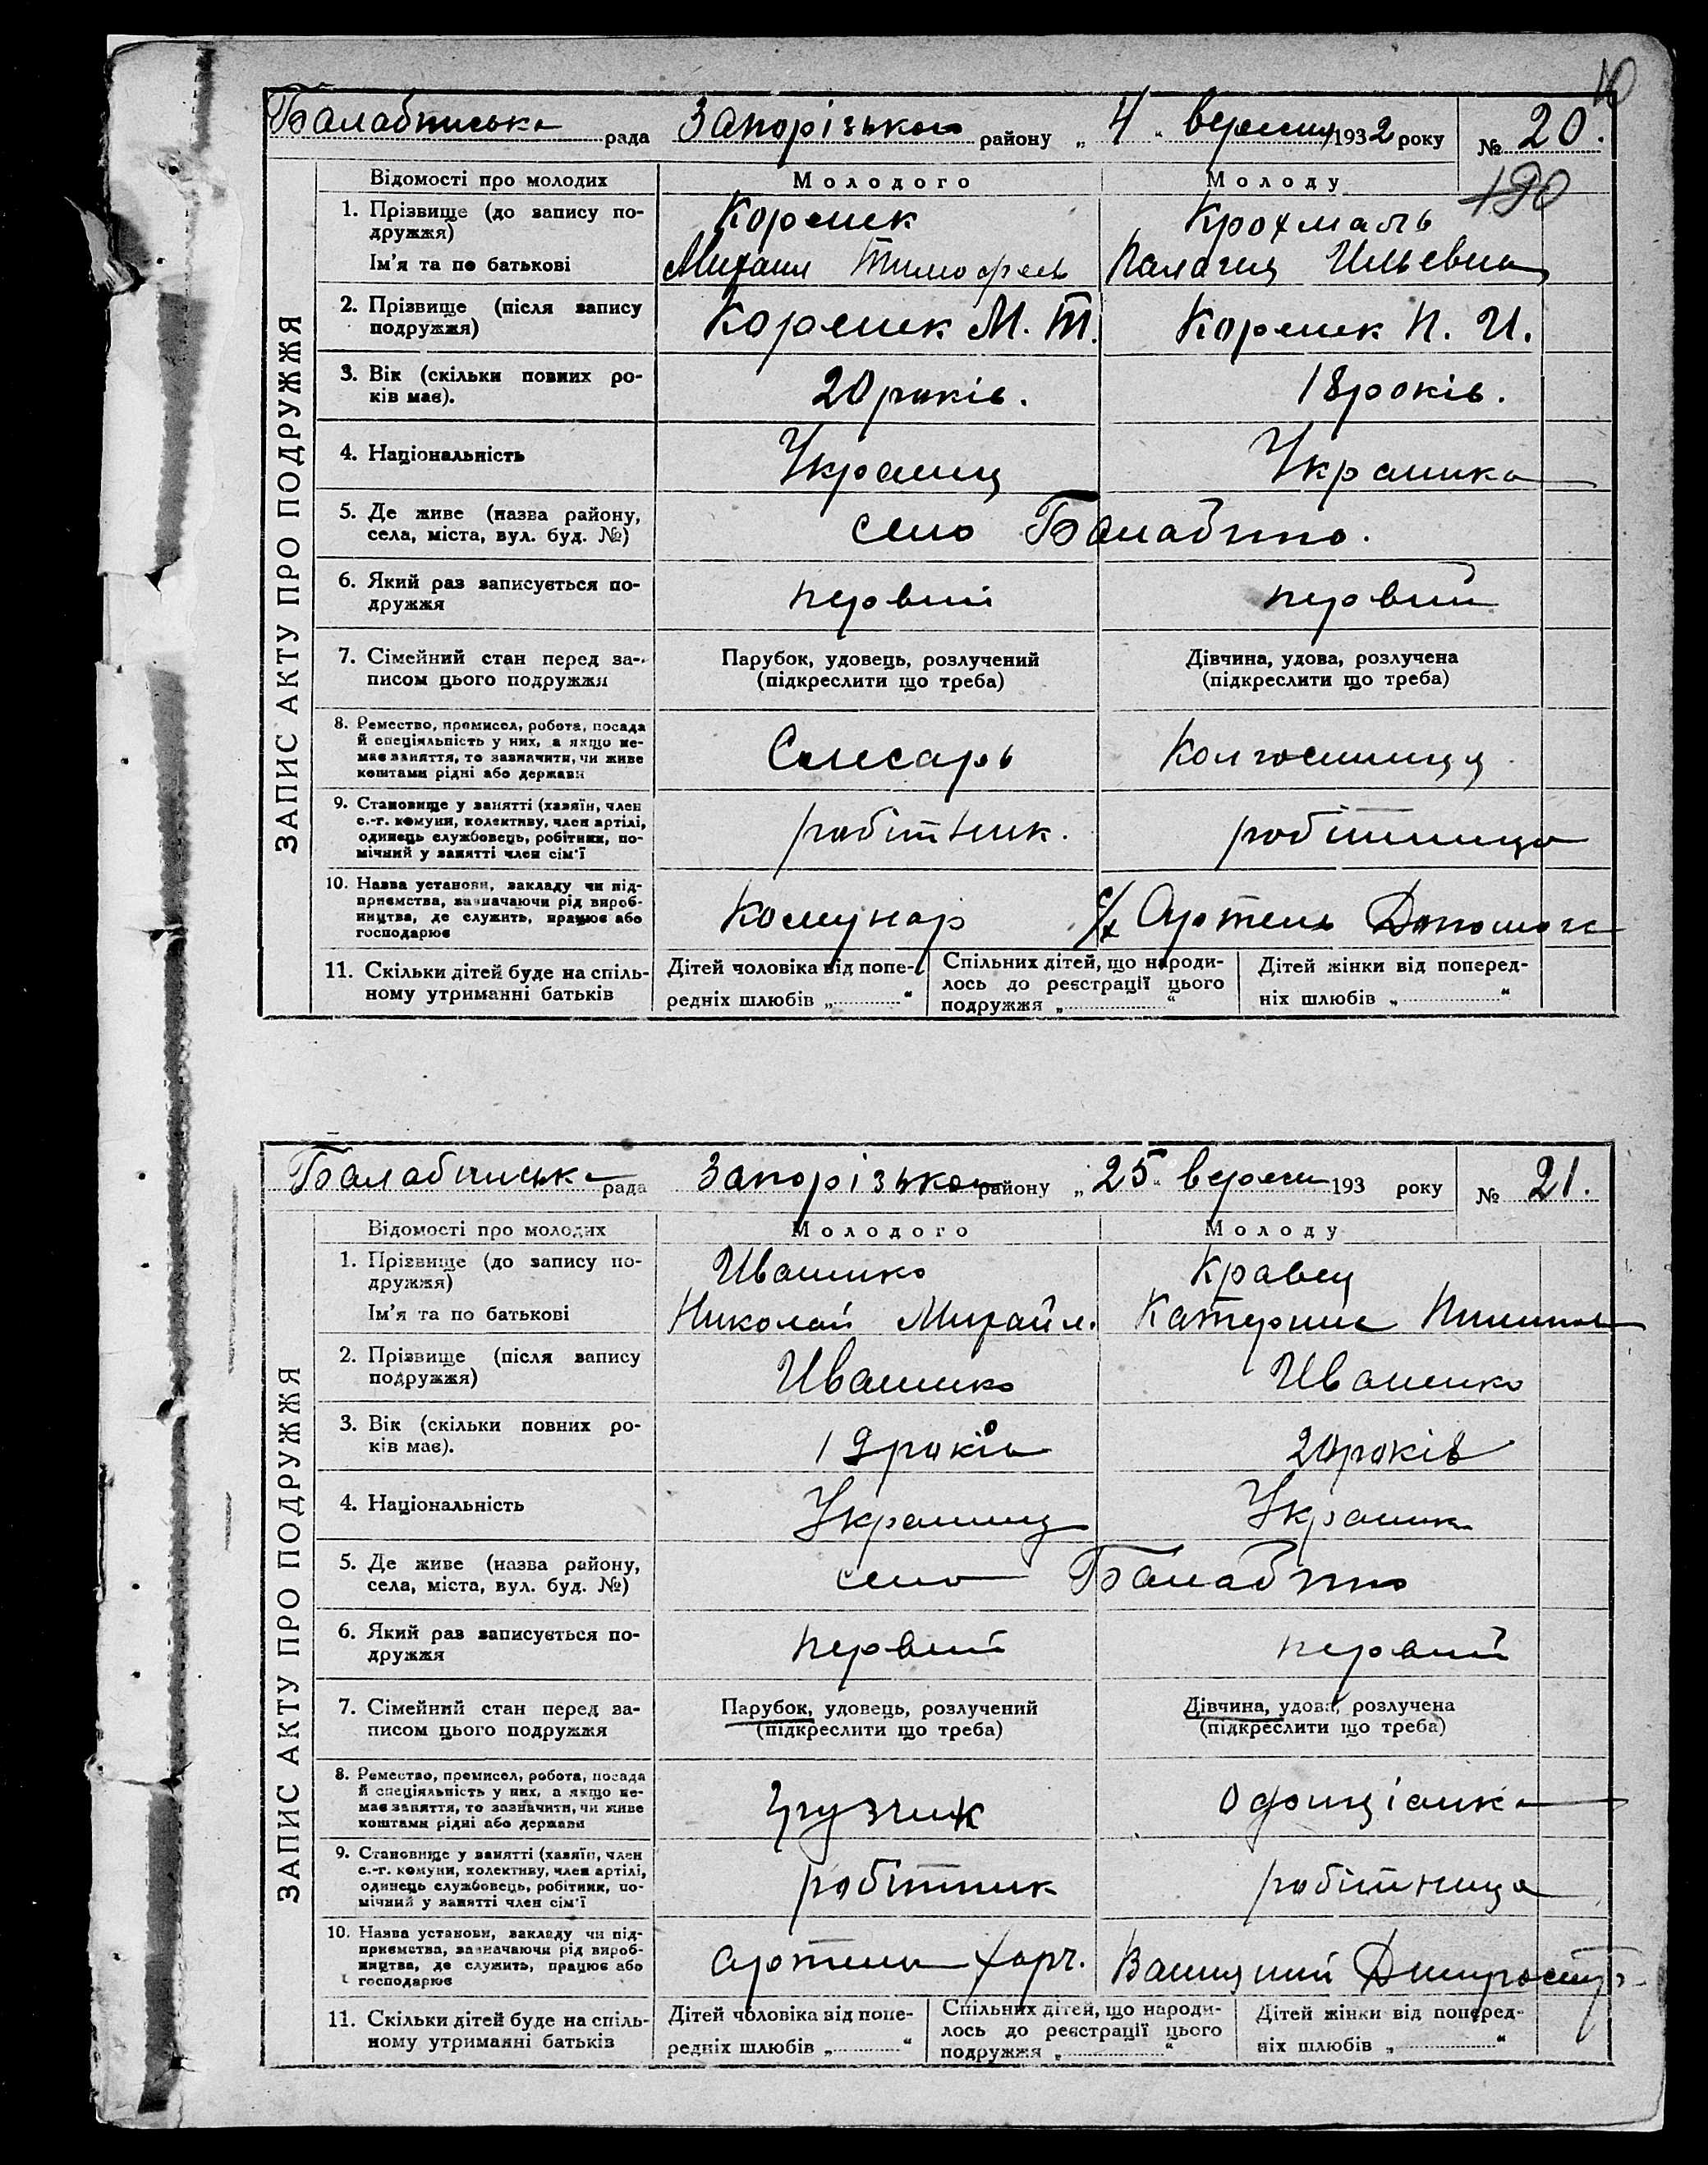 10
Балабинська рада Запорізького району „ 4 “ вересня 1932 року № 20.
190
ЗАПИС АКТУ ПРО ПОДРУЖЖЯ
Відомості про молодих Молодого Молоду
1. Прізвище (до запису по-
дружжя)
Коржик Крохмаль
Ім'я та по батькові
Михаил Тимофеев Палагия Ильевна
2. Прізвище (після запису
подружжя)
М. Т. П. И.
3. Вік (скільки повних ро-
ків має).
20 років. 18 років.
4. Національність
Украинц Украинка
5. Де живе (назва району,
села, міста, вул. буд. №)
село Балабино.
6. Який раз записується по-
дружжя
первий первий
7. Сімейний стан перед за-
писом цього подружжя
Парубок, удовець, розлучений
(підкреслити що треба)
Дівчина, удова, розлучена
(підкреслити що треба)
8. Ремество, промисел, робота, посада
й спеціяльність у них, а якщо не-
має заняття, то зазначити, чи живе
коштами рідні або держави
Слесарь Колгоспниця
9. Становище у занятті (хазяїн, член
с.-г. комуни, колективу, член артілі,
одинець службовець, робітник, по-
мічний у занятті член сім'ї
робітник. робітниця
10. Назва установи, закладу чи під-
приємства, зазначаючи рід вироб-
ництва, де служить, працює або
господарює
Комунар с/х Артель Допомога
11. Скільки дітей буде на спіль-
ному утриманні батьків
Дітей чоловіка від попе-
редніх шлюбів „ “
Спільних дітей, що народи-
лось до реєстрації цього
подружжя „ “
Дітей жінки від поперед-
ніх шлюбів „ “
Балабинська рада Запорізького району „ 25 “ вересн 193 року № 21.
ЗАПИС АКТУ ПРО ПОДРУЖЖЯ
Відомості про молодих Молодого Молоду
1. Прізвище (до запису по-
дружжя)
Иваненко Кравец
Ім'я та по батькові
Николай Михайл. Катерина
2. Прізвище (після запису
подружжя)
Иваненко Иваненко
3. Вік (скільки повних ро-
ків має).
19 років 20 років
4. Національність
Украинец Украинк
5. Де живе (назва району,
села, міста, вул. буд. №)
село Балабино
6. Який раз записується по-
дружжя
первий первий
7. Сімейний стан перед за-
писом цього подружжя
Парубок, удовець, розлучений
(підкреслити що треба)
Дівчина, удова, розлучена
(підкреслити що треба)
8. Ремество, промисел, робота, посада
й спеціяльність у них, а якщо не-
має заняття, то зазначити, чи живе
коштами рідні або держави
грузчик
9. Становище у занятті (хазяїн, член
с.-г. комуни, колективу, член артілі,
одинець службовець, робітник, по-
мічний у занятті член сім'ї
робітник робітниця
10. Назва установи, закладу чи під-
приємства, зазначаючи рід вироб-
ництва, де служить, працює або
господарює
артель харч.
11. Скільки дітей буде на спіль-
ному утриманні батьків
Дітей чоловіка від попе-
редніх шлюбів „ “
Спільних дітей, що народи-
лось до реєстрації цього
подружжя „ “
Дітей жінки від поперед-
ніх шлюбів „ “